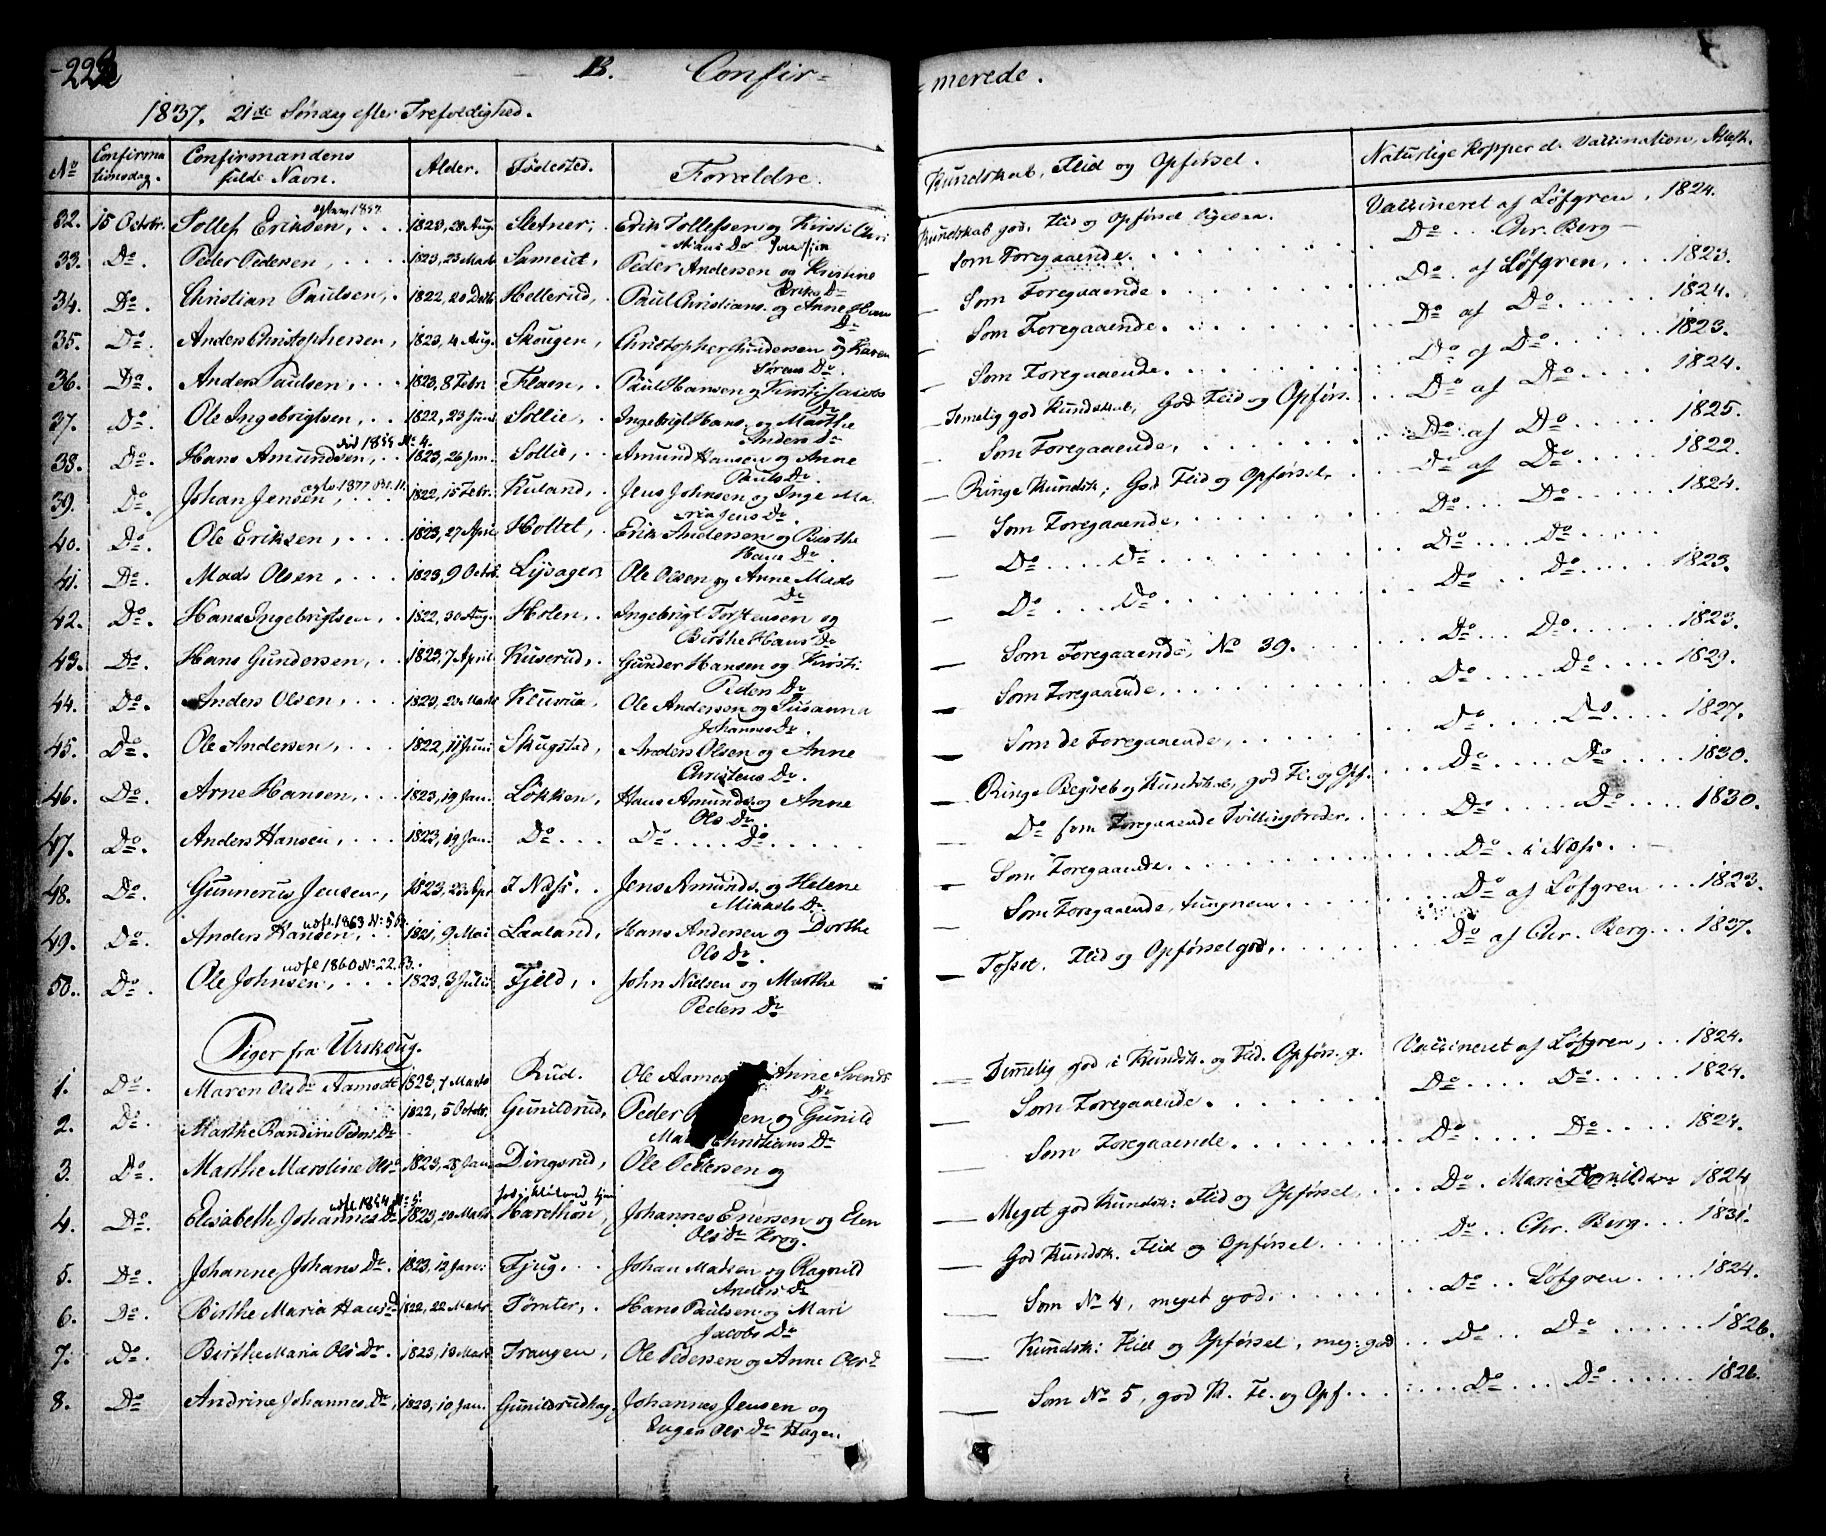 222 B. Confir= =merede.
1837. 21de Søndag efter Trefoldighed.
No Confirmationsdag. Confirmandens fulde Navn. Alder. Fødested. Forældre. Kundskab, Flid og Opførsel. Naturlige Kopper el. Vaccination, Attest.
32. 15 Octobr. Tollef Eriksen, 1823, 28 Aug. Sletner, Erik Tollefsen og Kirsti Kundskab god, Flid og Opførsel ligesaa. Vaccineret af Løfgren, 1824.
33. Do. Peder Pedersen, 1823, 23 Sameiet, Peder Andersen og Kristine Eriks Dr Som Foregaaende. Do Chr. Berg
34. Do. Christian Paulsen, 1822, 20 Hellerud, Paul Christians. og Anne Hans Dr Som Foregaaende. Do. af Løfgren, 1823.
35. Do. Anders Christophersen, 1823, 4 Aug. Skougen, Christopher Gundersen og Karen Sørens Dr. Som Foregaaende. Do af Do 1824.
36. Do. Anders Paulsen, 1823, 8 Febr. Floen, Paul Hansen og Kirsti Jacobs Dr Som Foregaaende. Do af Do 1823.
37. Do. Ole Ingebrigtsen, 1822, 23 Juni Sollie, Ingebrigt Hans. og Marthe Anders Dr Temelig god Kundskab, God Flid og Opførs. Do af Do 1824.
38. Do. Hans Amundsen, død 1854 No 4. 1823, 26 Jan. Sollie, Amund Hansen og Anne Pauls Dr. Som Foregaaende, Do af Do 1825.
39. Do. Johan Jensen, 1877 1822, 15 Febr. Kuland, Jens Johnsen og Inge Maria Jens Dr. Ringe Kundsk; God Flid og Opførsel, Do af Do 1822.
40. Do. Ole Eriksen, 1823, 27 April Holtet, Erik Andersen og Birthe Hans Dr. Som Foregaaende, Do Do 1824.
41. Do. Mads Olsen, 1823, 9 Octob. Lysager, Ole Olsen og Anne Mads Dr Do Do Do Do
42. Do. Hans Ingebrigtsen, 1822, 30 Aug. Holen, Ingebrigt Torstensen og Birthe Hans Dr Do Do Do Do 1823.
43. Do. Hans Gundersen, 1823, 7 April. Kuserud, Gunder Hansen og Kirsti Peders Dr Som Foregaaende, No 39. Do Do 1823.
44. Do. Anders Olsen, 1823, 20 Marts Ole Andersen og Susanna Johannes Dr. Som Foregaaende, Do Do 1829.
45. Do. Ole Andersen, 1822, 11 Juni Skugstad, Anders Olsen og Anne Christens Dr. Som de Foregaaende, Do Do 1827.
46. Do. Arne Hansen, 1823, 19 Jan. Løkken, Hans Amunds. og Anne Ols Dr. Ringe Begreb og Kundskab, god Fl. og Opf. Do Do 1830.
47. Do. Anders Hansen, 1823, 19 Jan. Do Do Do Do som Foregaaende Tvillingbroder. Do Do 1830.
48. Do. Gunnerius Jensen, 1823, 23 Apr. I Næss. Jens Amunds. og Helene Mikkels Dr Som Foregaaende. Do i Næss.
49. Do. Anders Hansen, udfl. 1863 1821, 9 Mai Laaland, Hans Andersen og Dorthe Ols Dr. Som Foregaaende, tungnem Do af Løfgren 1823.
50. Do. Ole Johnsen, udfl 1860 No 22. 1823, 3 Julii Fjeld, John Nielsen og Marthe Peders Dr Tosset. Flid og Opførsel god, Do af Chr. Berg 1837.
Piger fra Urskoug.
1. Do. Maren Ols Dr Aamodt 1823, 7 Marts Rud. Ole Anne Svends Dr Temmelig god i Kundsk. og Flid. Opførs. g. Vaccineret af Løfgren, 1824.
2. Do. Marthe Randine Peders Dr 1822, 5 Octobr. Gunildrud, Peder og Gunild Christians Dr Som Foregaaende. Do Do 1824.
3. Do. Marthe Maroline Ols Dr 1823, 28 Jan. Dingsrud, Ole Pedersen og Som Foregaaende. Do Do 1824.
4. Do. Elisabeth Johannes Dr udfl 1854 No 5. 1823, 20 Marts Johannes Enersen og Elen Ols Dr Krog. Meget god Kundsk: Flid og Opførsel, Do. 1824
5. Do. Johanne Johans Dr. 1823, 12 Jan: Fjug. Johan Madsen og Ragnild Anders Dr God Kundsk. Flid og Opførsel. Do Chr. Berg. 1831.
6. Do. Birthe Maria Hans Dr 1822, 22 Marts Tømter, Hans Paulsen og Mari Jacobs Dr Som No 4, meget god. Do Løfgren 1824.
7. Do. Birthe Maria Ols Dr. 1823, 18 Marts Trangen, Ole Pedersen og Anne Ols Dr Kundsk: Flid og Opførsel, meg: god Do Do 1826.
8. Do Andrine Johannes Dr, 1823, 10 Jan. Gunildrudhag. Johannes Jensen og Inger Ols Dr Hagen. Som No 5, god K. Fl. og Opf. Do Do 1826.